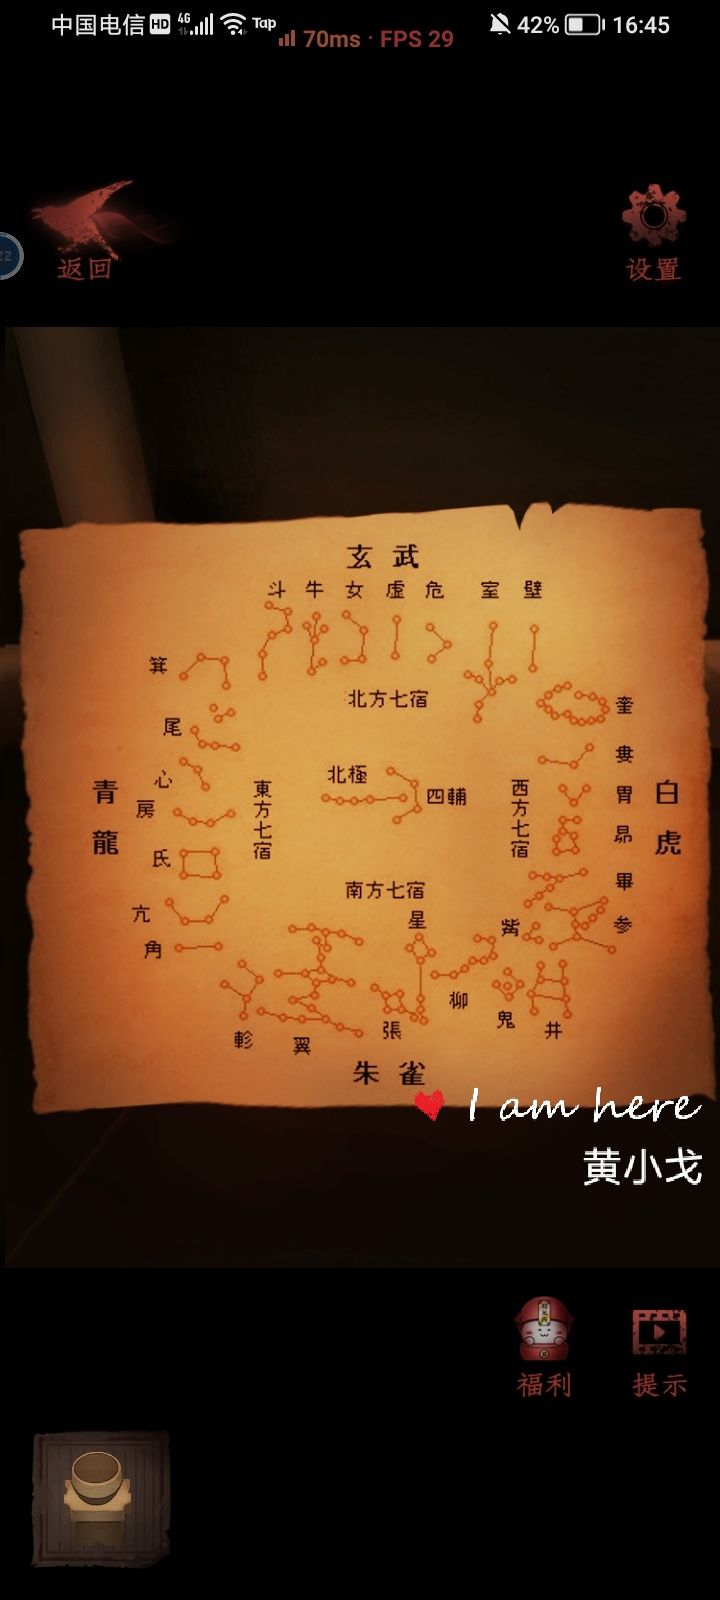 中国电信 HD 4G Tap 70ms · FPS 29 42% 16:45
返回 设置
22
玄武
斗 牛 女 虛 危 室 壁
箕
北方七宿
奎
尾
婁
心
北極
四輔
胃
房
青龍
東方七宿
西方七宿
白虎
昴
氐
畢
南方七宿
亢
星
觜
参
角
柳
鬼
井
張
軫
翼
朱雀
I am here
黄小戈
福利 提示